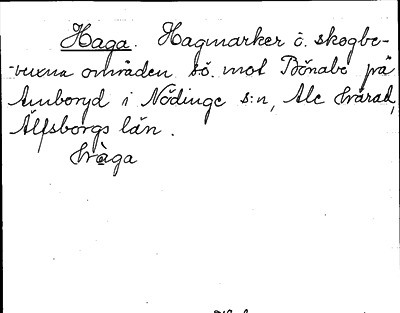 Haga. Hagmarker o. skogbe-
-vuxna områden sö. mot Bönabe på
Amboryd i Nödinge s:n, Ale härad,
Älfsborgs län.
hàga